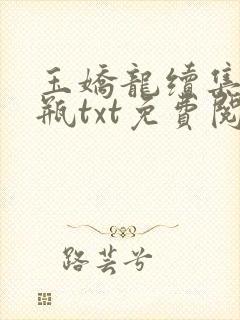 玉嬌龍續集
瓶txt免費閱
路芸兮